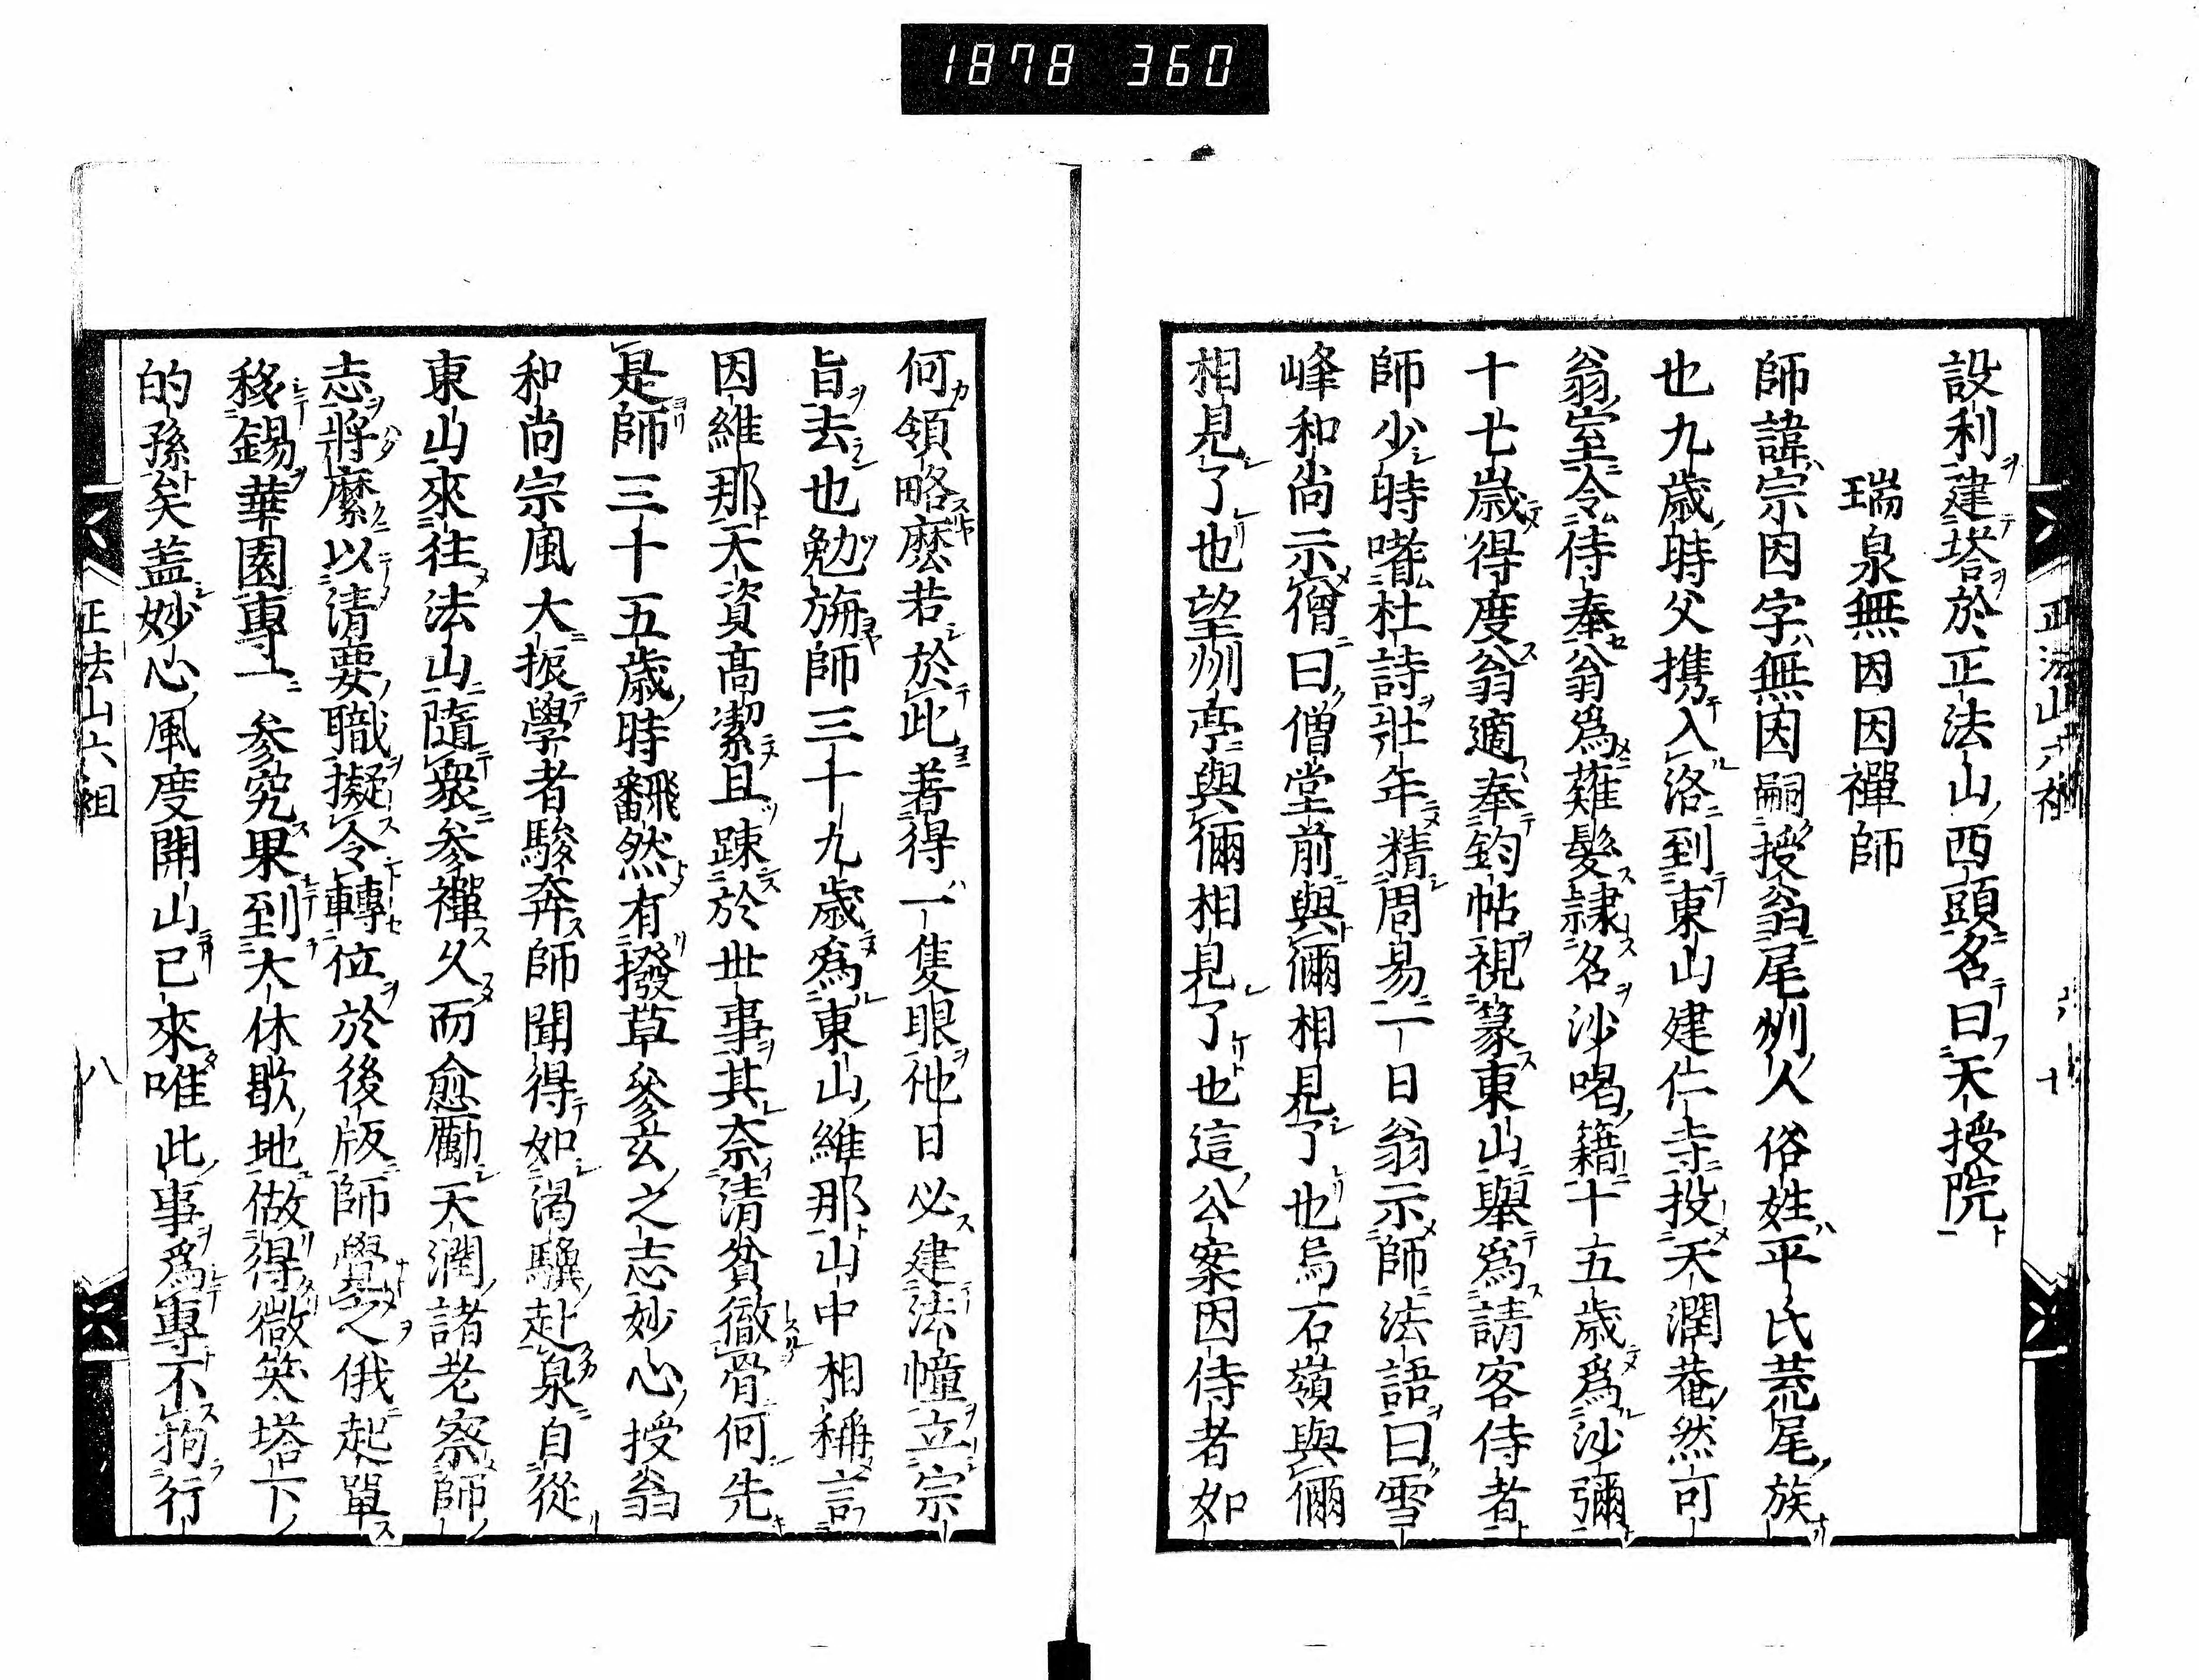 1878 360
設利建塔於正法山西頭名曰天授院
瑞泉無因因禪師
師諱宗因字無因嗣授翁尾州人俗姓平氏荒尾族
也九歳時父携入洛到東山建仁寺投天潤菴然可
翁室令侍奉翁爲薙髮隷名沙喝籍十五歳爲沙彌
十七歳得度翁適奉鈞帖視篆東山擧爲請客侍者
師少時嗜杜詩壯年精周易一日翁示師法語曰雪
峰和尚示僧曰僧堂前與儞相見了也烏石嶺與儞
相見了也望州亭與儞相見了也這公案因侍者如
何領略麽若於此著得一隻眼他日必建法幢立宗
旨去也勉旃師三十九歳爲東山維那山中相稱言
因維那天資高潔且踈於世事其奈清貧徹骨何先
是師三十五歳時飜然有撥草參玄之志妙心授翁
和尚宗風大振學者駿奔師聞得如渴驥赴泉自從
東山來往法山隨衆參禪久而愈勵天潤諸老察師
志將縻以清要職擬令轉位於後版師覺之俄起單
移錫華園專一參究果到大休歇地做得微笑塔下
的孫矣蓋妙心風度開山已來唯此事爲專不拘行
正法山六祖
八